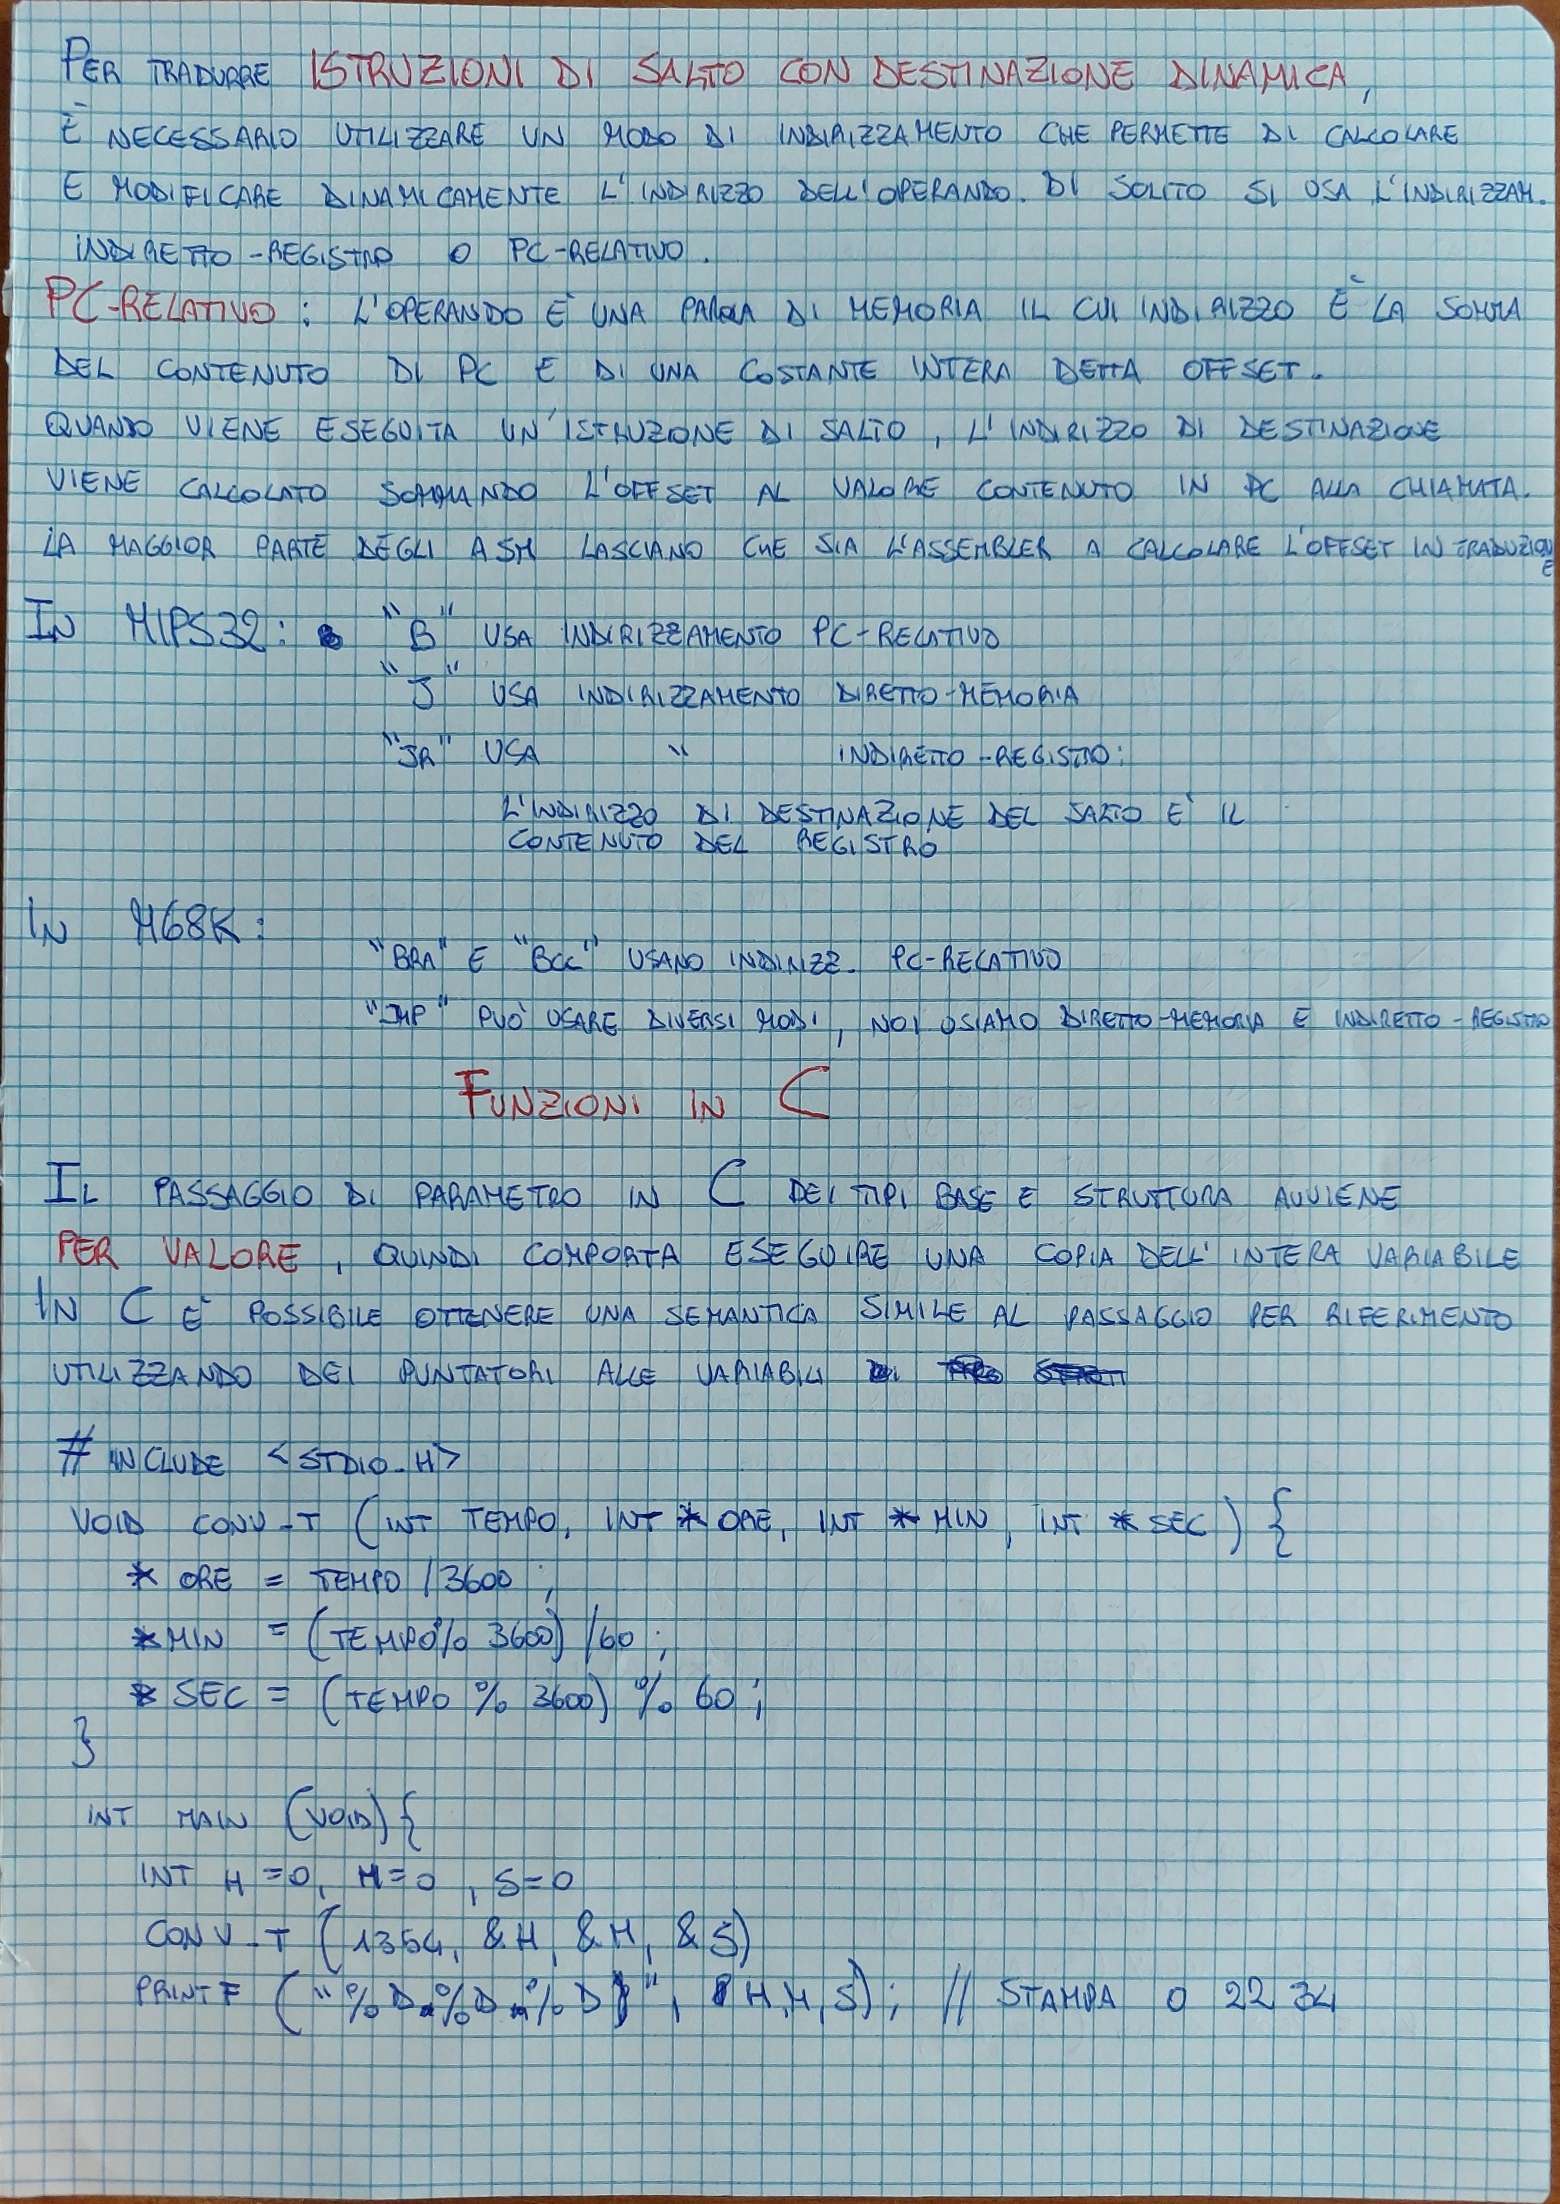 PER TRADURRE ISTRUZIONI DI SALTO CON DESTINAZIONE DINAMICA,
È NECESSARIO UTILIZZARE UN MODO DI INDIRIZZAMENTO CHE PERMETTE DI CALCOLARE
E MODIFICARE DINAMICAMENTE L'INDIRIZZO DELL'OPERANDO. DI SOLITO SI USA L'INDIRIZZAM.
INDIRETTO-REGISTRO O PC-RELATIVO.
PC-RELATIVO: L'OPERANDO È UNA PAROLA DI MEMORIA IL CUI INDIRIZZO È LA SOMMA
DEL CONTENUTO DI PC E DI UNA COSTANTE INTERA DETTA OFFSET.
QUANDO VIENE ESEGUITA UN'ISTRUZIONE DI SALTO, L'INDIRIZZO DI DESTINAZIONE
VIENE CALCOLATO SOMMANDO L'OFFSET AL VALORE CONTENUTO IN PC ALLA CHIAMATA.
LA MAGGIOR PARTE DEGLI ASM LASCIANO CHE SIA L'ASSEMBLER A CALCOLARE L'OFFSET IN TRADUZIONE
IN MIPS32: "B" USA INDIRIZZAMENTO PC-RELATIVO
"J" USA INDIRIZZAMENTO DIRETTO-MEMORIA
"JR" USA " INDIRETTO-REGISTRO:
L'INDIRIZZO DI DESTINAZIONE DEL SALTO E' IL
CONTENUTO DEL REGISTRO
IN M68K:
"BRA" E "BCC" USANO INDIRIZZ. PC-RELATIVO
"JMP" PUO' USARE DIVERSI MODI, NOI USIAMO DIRETTO-MEMORIA E INDIRETTO-REGISTRO
FUNZIONI IN C
IL PASSAGGIO DI PARAMETRO IN C DEI TIPI BASE E STRUTTURA AVVIENE
PER VALORE, QUINDI COMPORTA ESEGUIRE UNA COPIA DELL'INTERA VARIABILE
IN C E' POSSIBILE OTTENERE UNA SEMANTICA SIMILE AL PASSAGGIO PER RIFERIMENTO
UTILIZZANDO DEI PUNTATORI ALLE VARIABILI
# INCLUDE <STDIO.H>
VOID CONV_T (INT TEMPO, INT *ORE, INT *MIN, INT *SEC) {
* ORE = TEMPO /3600;
*MIN = (TEMPO% 3600) /60;
* SEC = (TEMPO % 3600) % 60;
}
INT MAIN (VOID) {
INT H =0, M=0, S=0
CONV_T (1354, &H, &M, &S)
PRINTF ("%D.%D.%D", H,M,S); // STAMPA 0 22 34